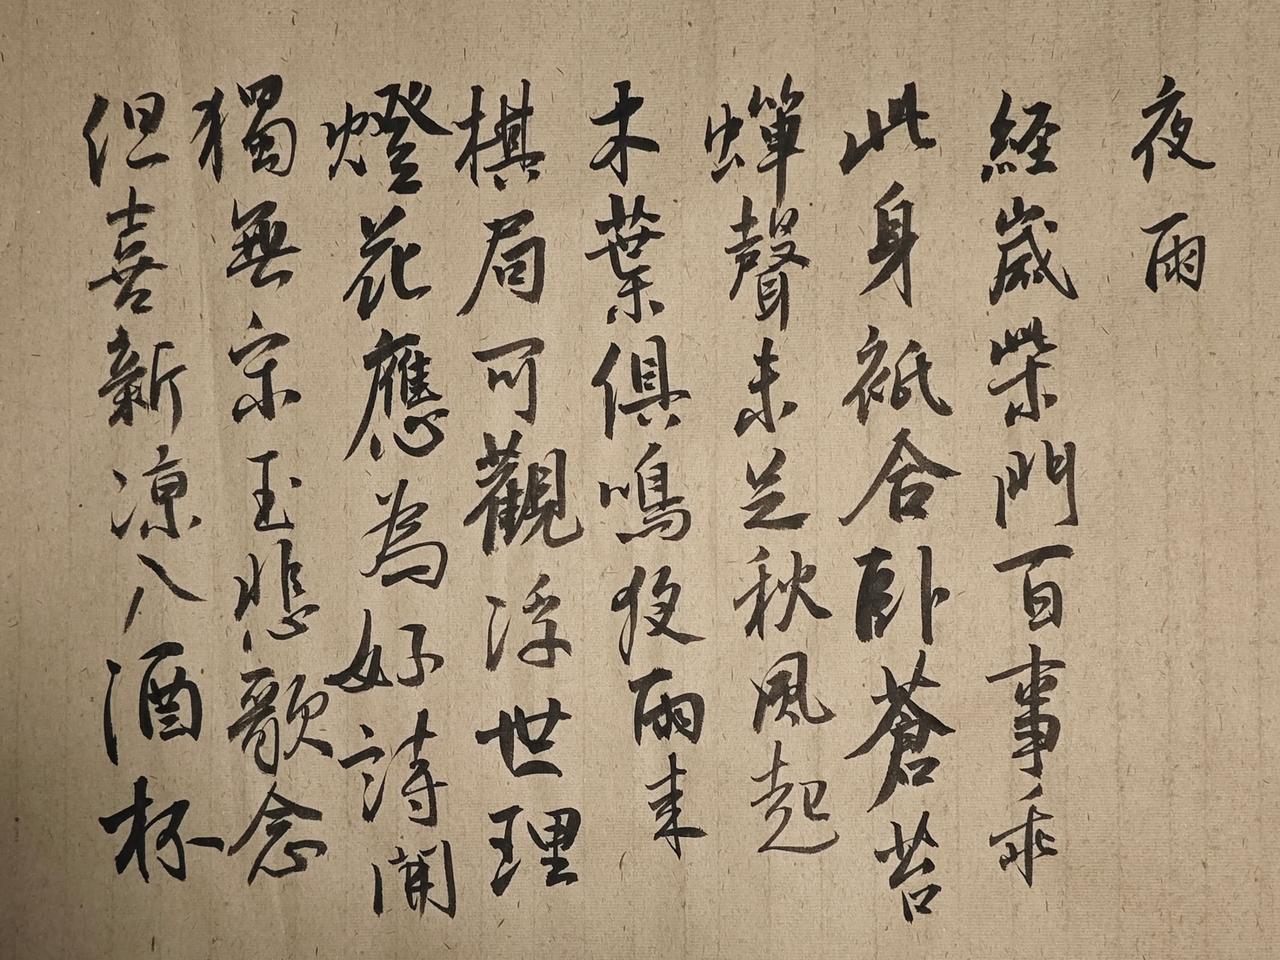 夜雨
經歲柴門百事乖
此身祗合卧蒼苔
蟬聲未足秋風起
木葉俱鳴夜雨来
棋局可觀浮世理
燈花應為好詩開
獨無宋玉悲歌念
但喜新凉入酒杯